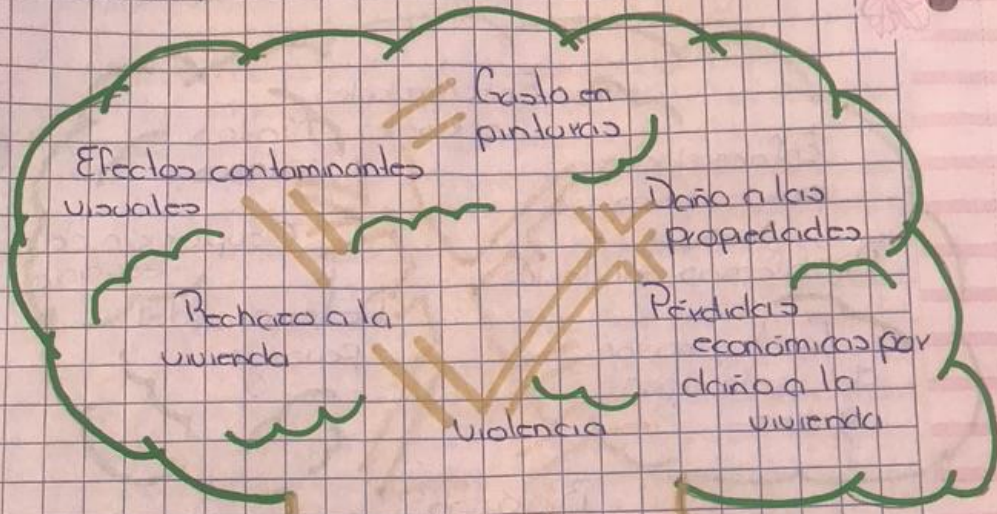 Gasto en
pinturas
Efectos contaminantes
visuales
Daño a las
propiedades
Rechazo a la
vivienda
Pérdidas
económicas por
daño a la
vivienda
violencia